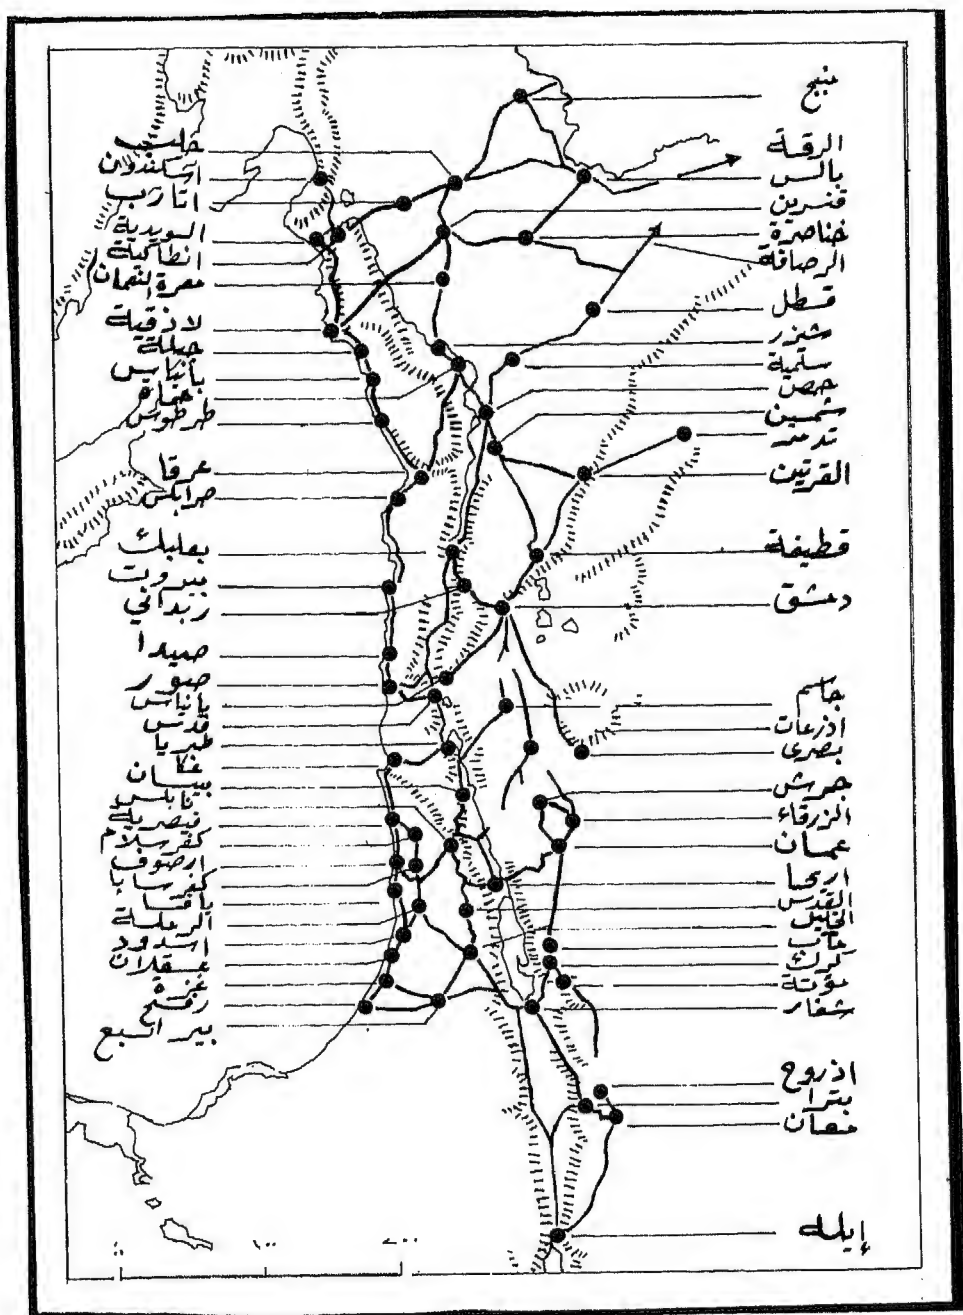 منبج
الرقة
بالس
قنسرين
خناصرة
الرصافة
قسطل
شيزر
سلمية
حمص
شمسين
تدمر
القرتين
قطيفة
دمشق
جاسم
اذرعات
بصرى
جرش
الزرقاء
عمان
اريحا
القدس
الخليل
مآب
كرك
مؤتة
اذروح
بترا
إيله
حلب
اسكندرون
اتارب
السويدية
انطاكية
معرة النعمان
لاذقية
جبلة
بانياس
حماه
طرطوس
عرقا
طرابلس
بعلبك
بيروت
زبداني
صيدا
صور
بانياس
قدس
طبريا
عكا
بيسان
نابلس
قيصرية
كفرسلام
ارصوف
كفرسابا
يافا
الرملة
اسدود
عسقلان
غزه
رفح
بير السبع
١٠٠
٢٠٠